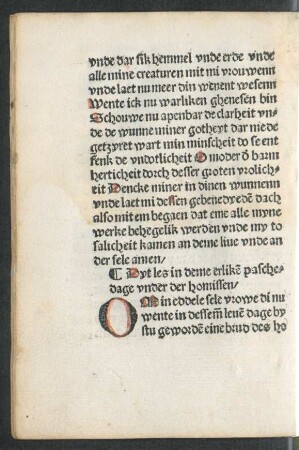 vnde dar sik hemmel vnde erde vnde
alle mine creaturen mit mi vrouwenn
vnde laet nu meer din wenent wesenn
Wente ick nu warliken ghenesen bin
Schouwe nu apenbar de clarheit vn-
de de wunne miner gotheyt dar mede
getzyret wart min minscheit do se ent
fenk de vndotlicheit O moder d̄ barm
herticheit dorch desser groten vrolich-
eit Dencke miner in dinen wunnenn
vnde laet mi dessen gebenedyedē dach
also mit em begaen dat eme alle myne
werke behegelik werden vnde my to
salicheit kamen an deme liue vnde an
der sele amen/
¶ Dyt les in deme erlikē pasche-
dage vnder der homissen/
O Min eddele sele vrowe di nu
wente in dessem̄ leuē dage by
stu gewordē eine brud des ho